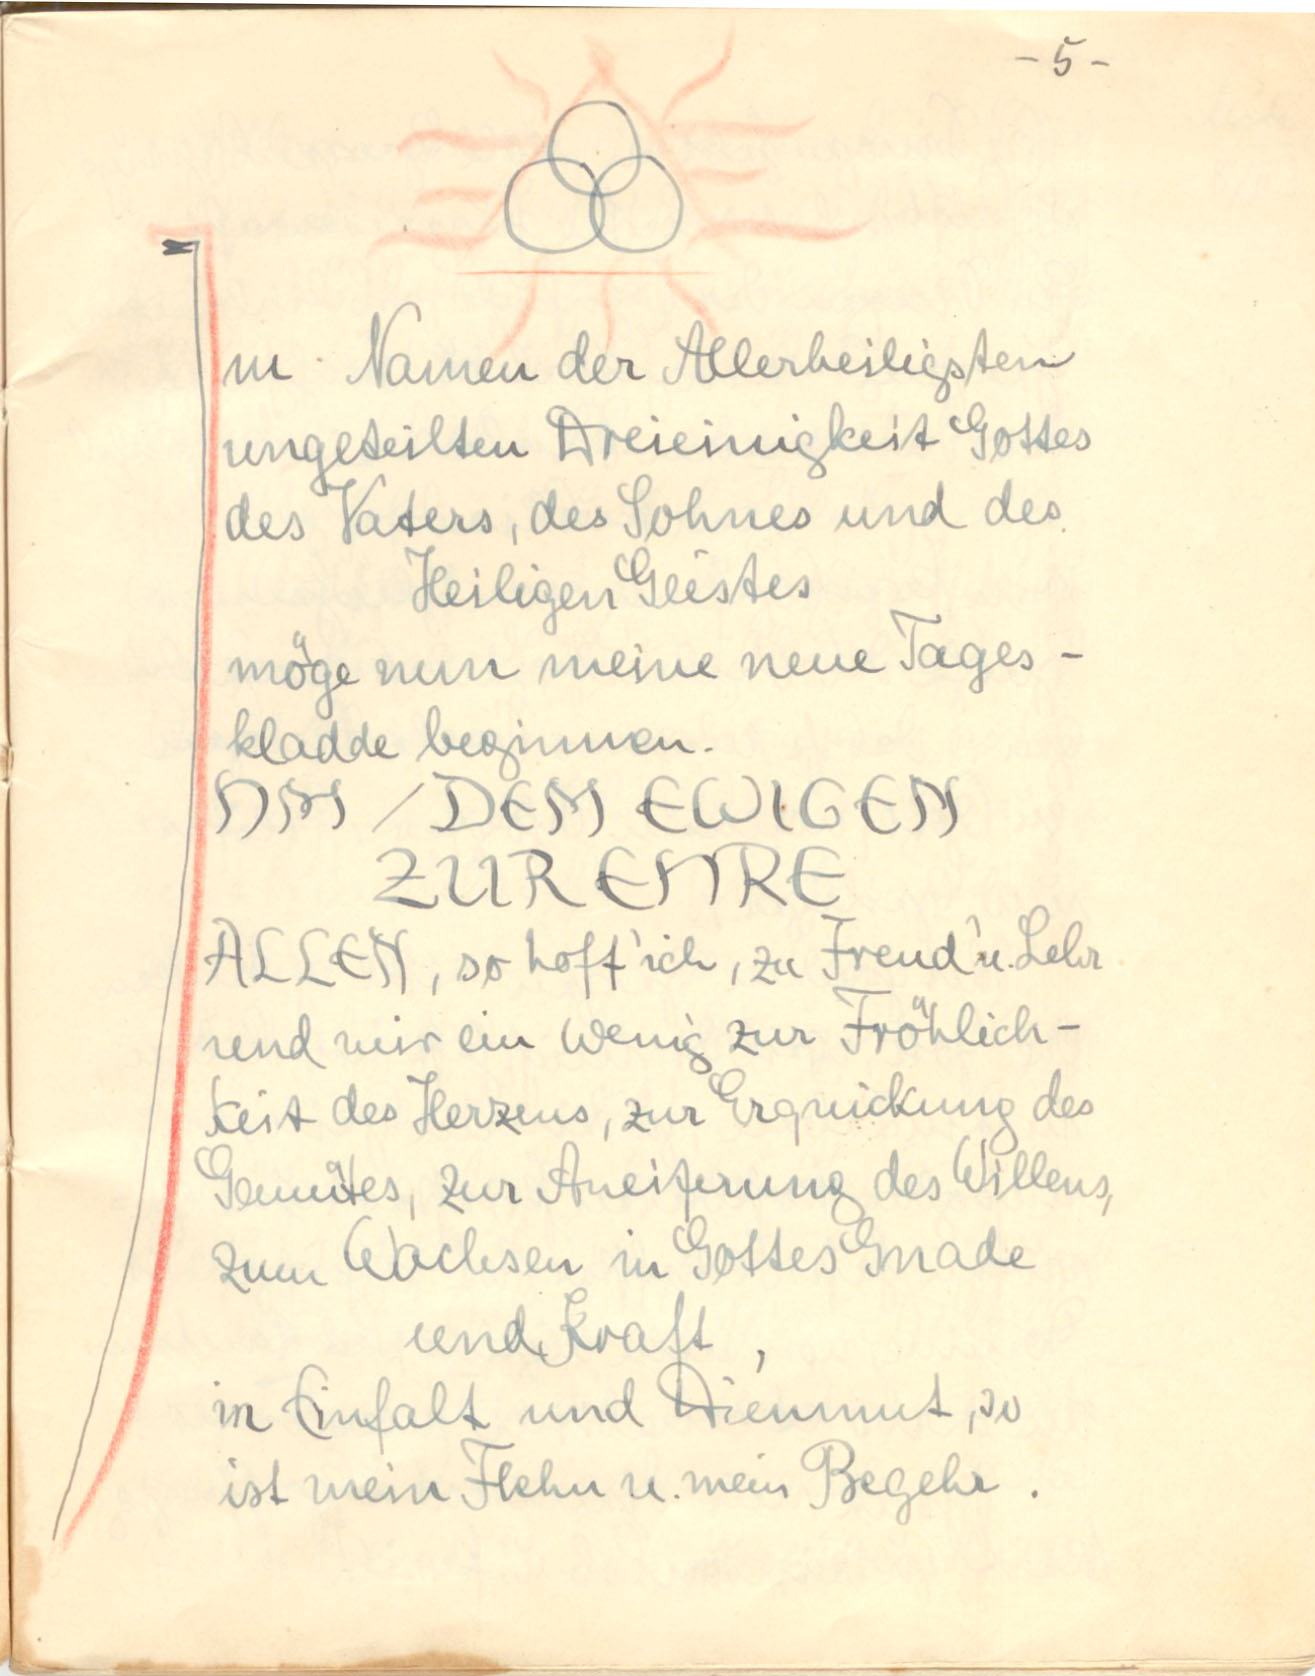 - 5 -
Im Namen der Allerheiligsten
ungeteilten Dreieinigkeit Gottes
des Vaters, des Sohnes und des
Heiligen Geistes
möge nun meine neue Tages-
kladde beginnen.
IHM / DEM EWIGEN
ZUR EHRE
ALLEN, so hoff' ich, zu Freud' u. Lehr
und mir ein wenig zur Fröhlich-
keit des Herzens, zur Erquickung des
Gemütes, zur Aneiferung des Willens,
zum Wachsen in Gottes Gnade
und Kraft,
in Einfalt und Dienmut, so
ist mein Flehn u. mein Begehr.